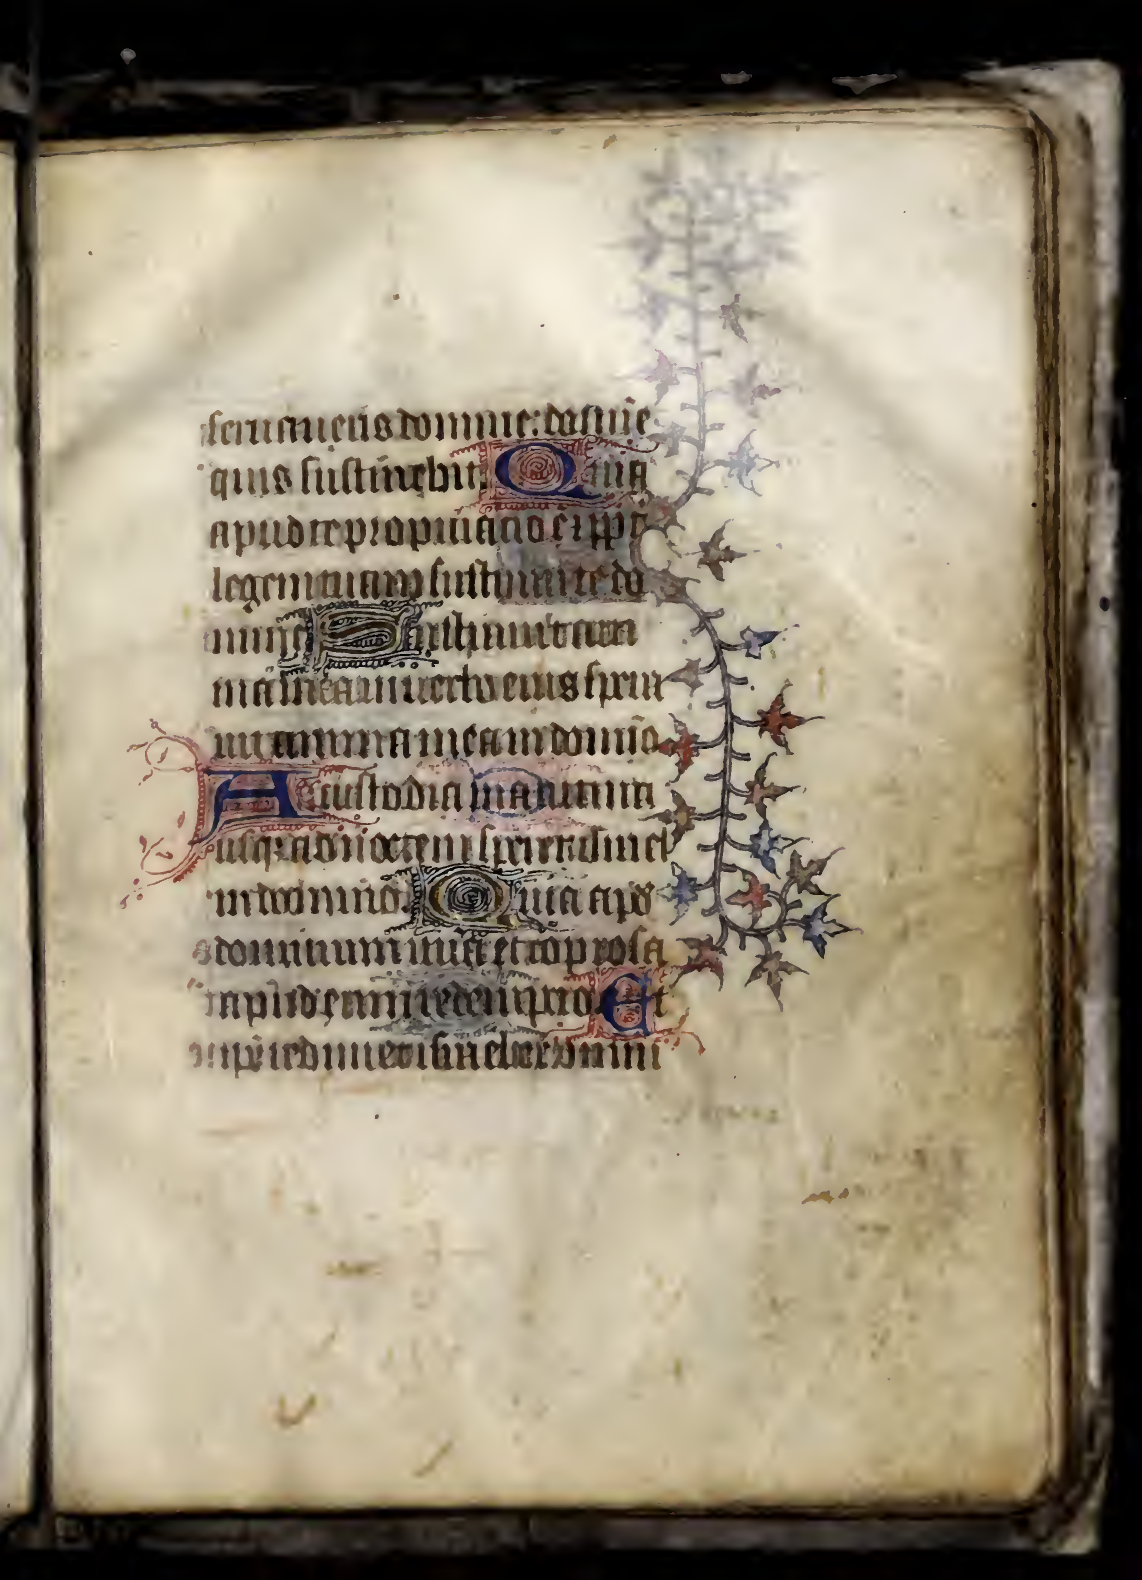 seruaueris domine: domine
quis sustinebit Quia
apud te propiciacio e: et ppt̄
legem tuam sustinui te do
mine Sustinuit ani
ma mea in uerbo eius spera
uit anima mea in domīo
A custodia matutina
usq; ad noctem speret israel
in domino Quia apd̄
dominum mīa et copiosa
apud eum redempcio Et
ipse redimet israel ex omni